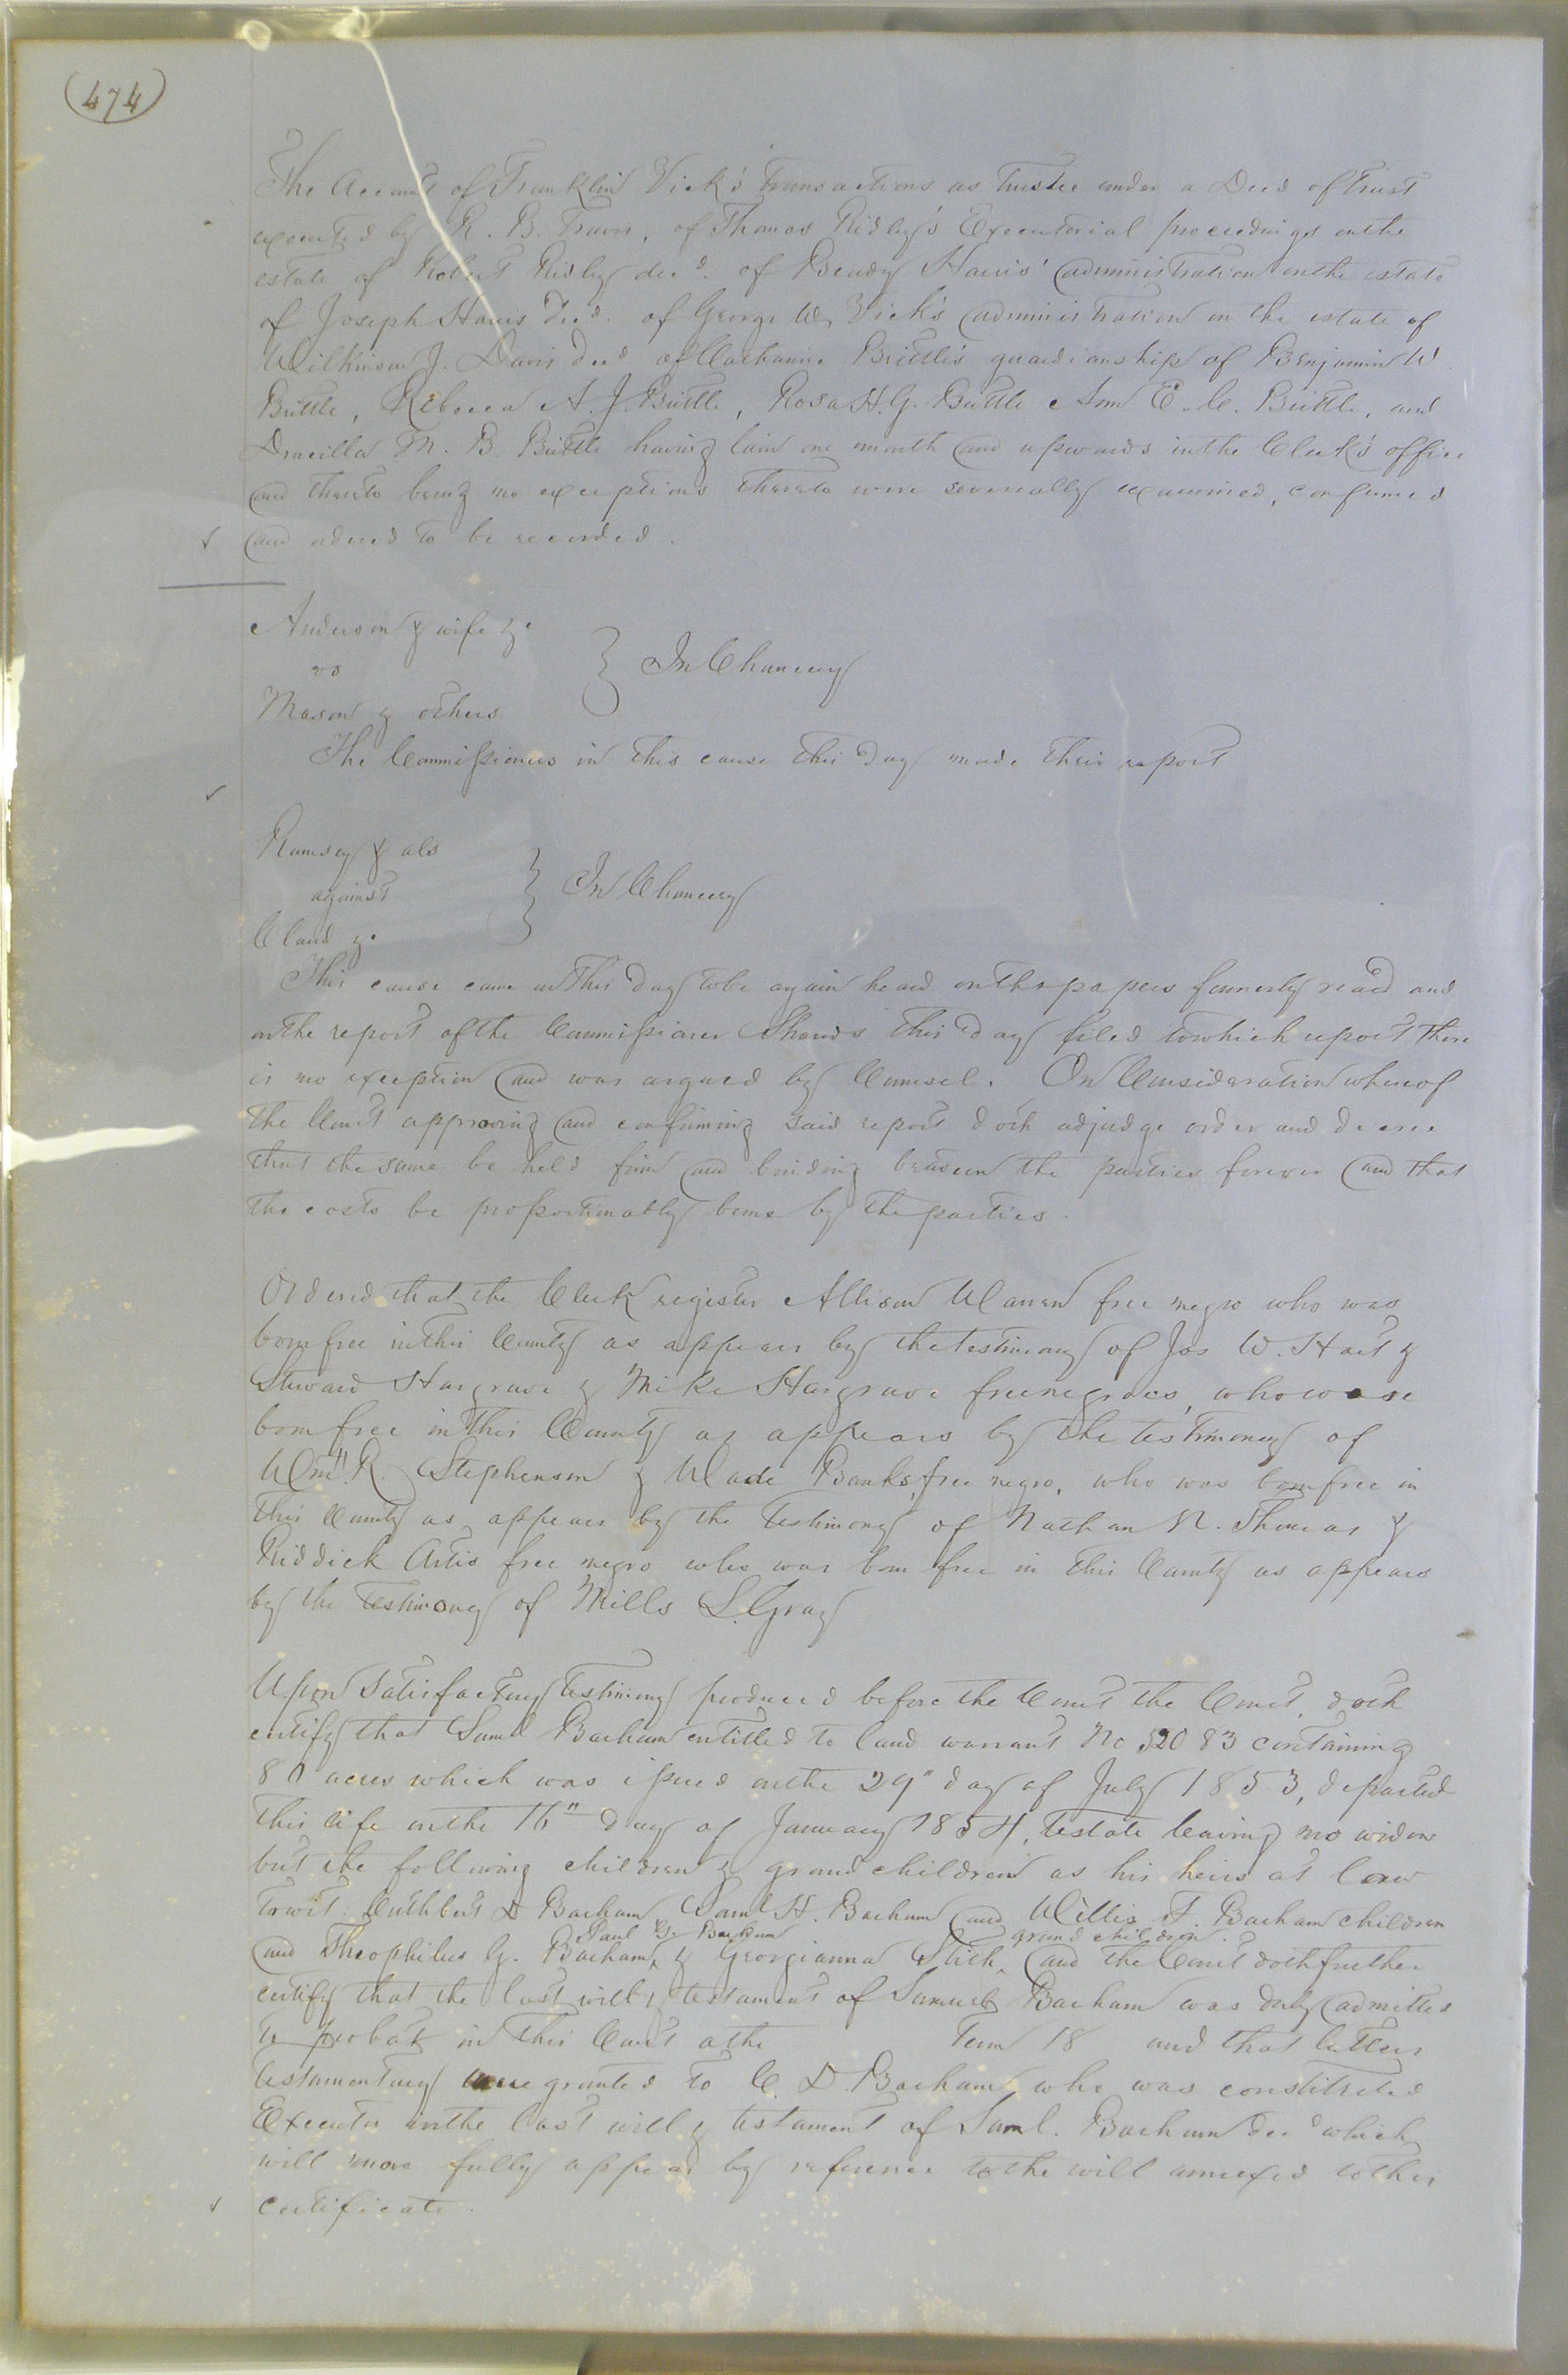 (474)
The Accounts of Franklin Vick's transactions as Trustee under a Deed of Trust
executed by R. B. Travis, of Thomas Ridley's Executorial proceedings on the
estate of Robert Ridley decd. of Benady Harris' administration on the estate
of Joseph Harris Decd. of George W. Vick's administration on the estate of
Wilkinson J. Davis decd of Catharine Brittle's guardianship of Benjamin W.
Brittle, Rebecca A. J. Brittle, Rosa H. G. Brittle Ann E. C. Brittle, and
Drucilla M. B. Brittle having lain one month and upwards in the Clerk's office
and there being no exceptions thereto were severally examined, confirmed
and ordered to be recorded.
Anderson & wife &c
vs } In Chancery
Mason & others
The Commissioners in this cause this day made their report
Ramsey & als
against } In Chancery
Claud &c
This cause came on this day to be again heard on the papers formerly read and
on the report of the Commissioner Shands this day filed to which report there
is no exception and was argued by Counsel. On Consideration whereof
the Court approving and confirming said report doth adjudge order and decree
that the same be held firm and binding between the parties forever and that
the costs be proportionably borne by the parties.
Ordered that the Clerk register Allison Warren free negro who was
born free in this County as appears by the testimony of Jas W. Hart &
Steward Hargrave & Mike Hargrave free negroes, who wase
born free in this County as appears by the testimony of
Wm. R. Stephenson & Wade Banks, free negro, who was born free in
this County as appears by the testimony of Nathan N. Thomas &
Riddick Artis free negro who was born free in this County as appears
by the testimony of Mills L. Gray
Upon Satisfactory testimony produced before the Court the Court, doth
certify that Saml Barham entitled to land warrant No 52083 containing
80 acres which was issued on the 29" day of July 1853, departed
this life on the 16" day of January 1854, testate leaving no widow
but the following children & grandchildren as his heirs at law
towit: Cuthbert D Barham Saml H. Barham and Willis F. Barham children
Paul G. Barham grand children.
and Theophilus G. Barham, & Georgianna Stith, and the Court doth further
certify that the last will & testament of Samuel Barham was duly admitted
to probat in this Court athe Term 18 and that letters
testamentary were granted to C. D. Barham who was constituted
Executor in the last will & testament of Saml. Barham decd which
will more fully appear by reference to the will annexed to this
certificate.